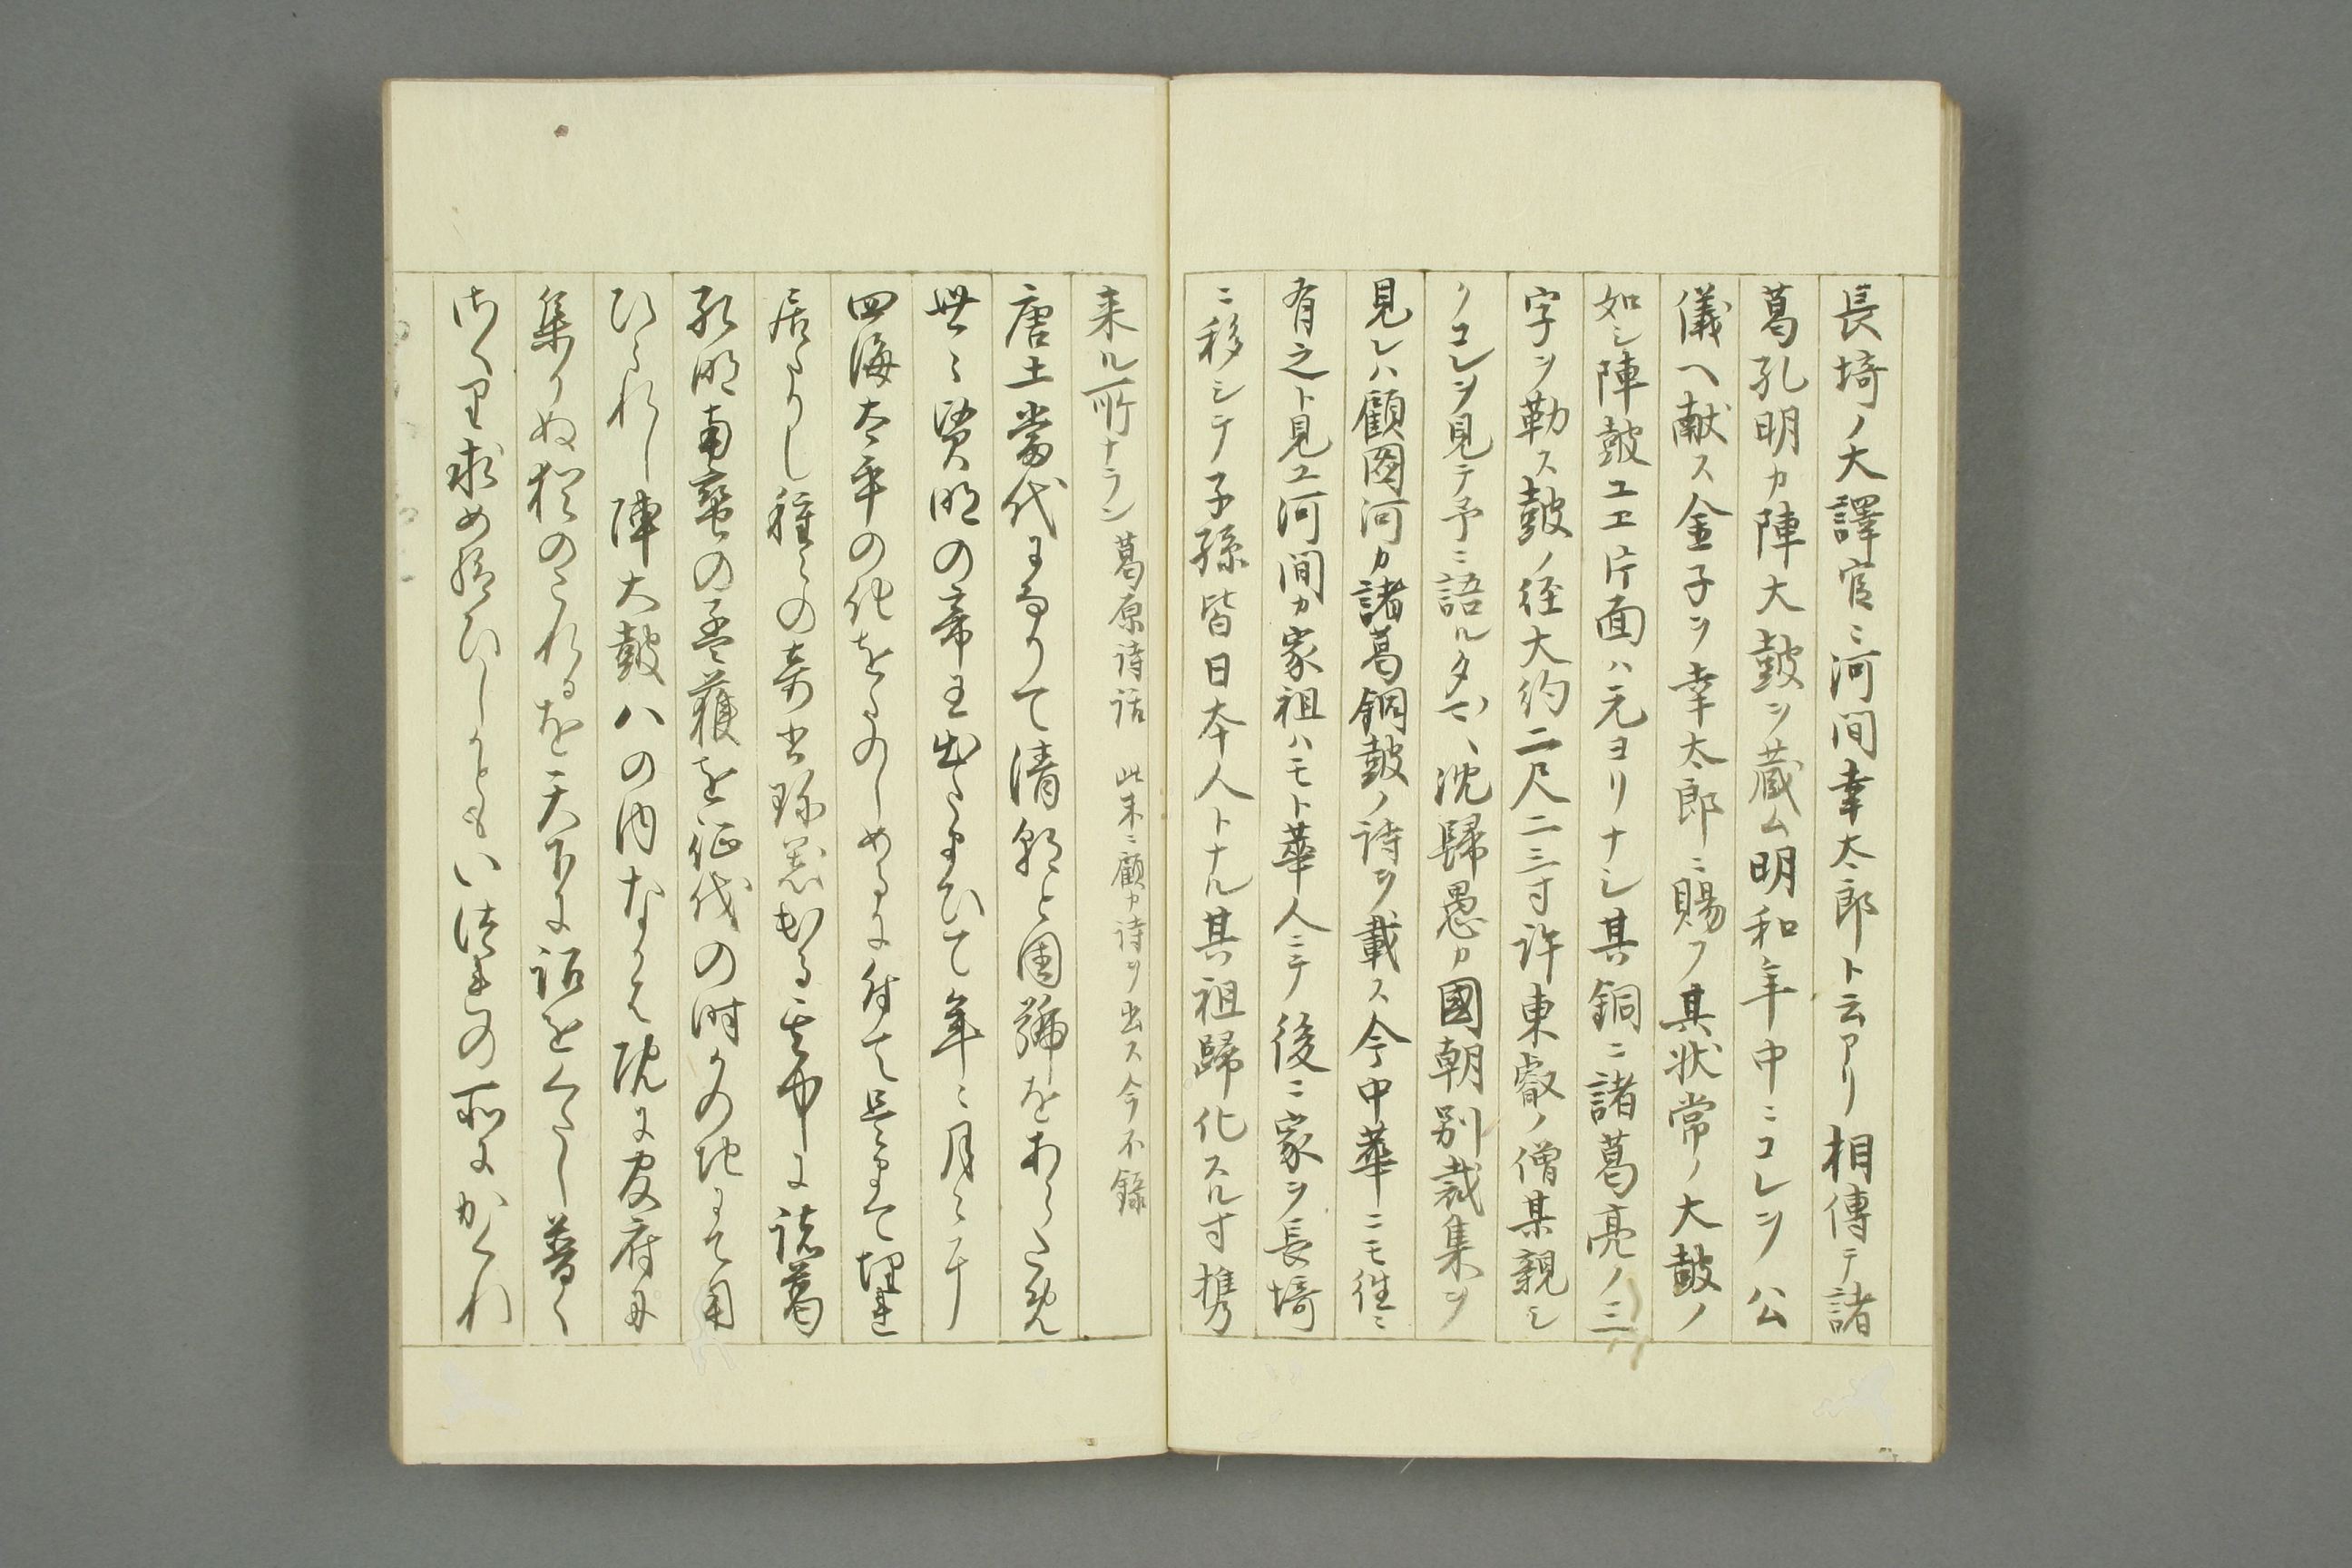 長埼ノ大譯官ニ河間幸太郎ト云アリ相傳テ諸
葛孔明カ陣大鼓ヲ蔵ム明和年中ニコレヲ公
儀ヘ献ス金子ヲ幸太郎ニ賜フ其状常ノ大鼓ノ
如シ陣鼓ユエ片面ハ元ヨリナシ其銅ニ諸葛亮ノ三
字ヲ勒ス鼓ノ径大約二尺二三寸許東叡ノ僧某親シ
クコレヲ見テ予ニ語ル沈歸愚カ國朝別裁集ヲ
見レハ顧圖河カ諸葛銅鼓ノ詩ヲ載ス今中華ニモ往ニ
有之ト見ユ河間カ家祖ハモト華人ニテ後ニ家ヲ長埼
ニ移シテ子孫皆日本人トナル其祖歸化スル寸携
来ル所ナラン 葛原詩話 此末ニ顧カ詩ヲ出ス今不録
唐土當代になりて清朝と国号をあらため
世々賢明の帝王出たまひて年々月々
四海太平の化をたのしめるに付て是まて埋れ
居たりし種々の奇書珍器出る其中に諸葛
孔明南蛮の孟獲を征伐の時かの地にて用
ひられし陣大鼓八の内なかは既に官府に
集りぬ猶のこれるを天下に詔をくたし普く
求め給ひしかともいつれの所にかくれ